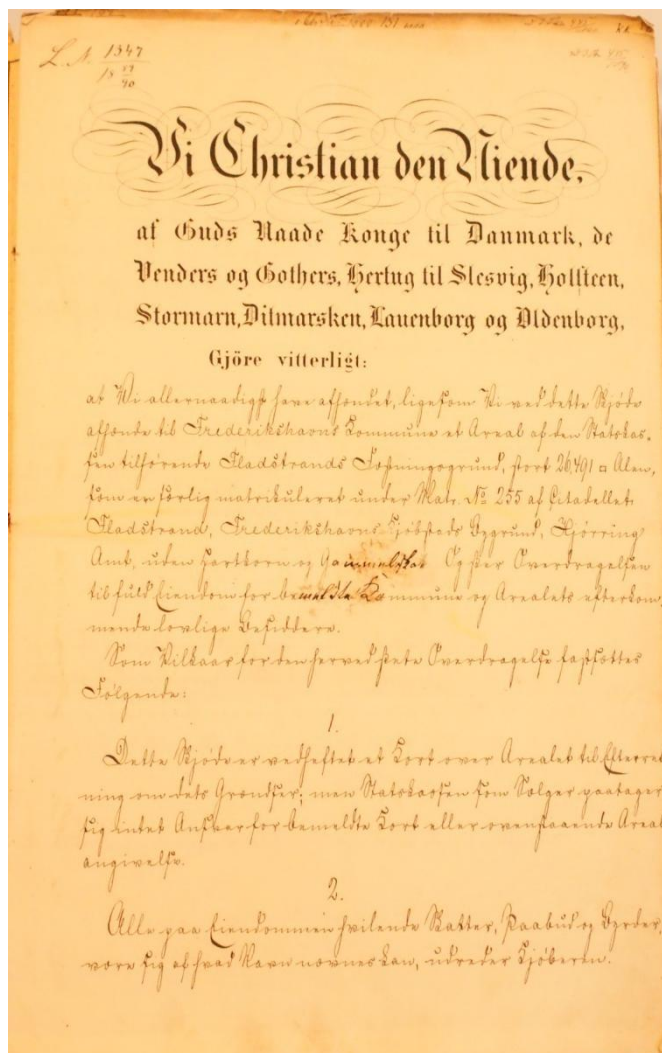 L. N. 1347
18 89/90
Vi Christian den Niende,
af Guds Naade Konge til Danmark, de
Venders og Gothers, Hertug til Slesvig, Holsteen,
Stormarn, Ditmarsken, Lauenborg og Oldenborg,
Gjöre vitterligt:
at Vi allernaadigst have afhændet, ligesom Vi ved dette Skjøde
afhænde til Frederikshavns Kommune et Areal af den Statskas-
sen tilhørende Fladstrands Fæstningsgrund, stort 26,491 □ Alen,
som er særlig matrikuleret under Mat. No 255 af Citadellet
Fladstrand, Frederikshavns Kjøbsteds Bygrund, Hjørring
Amt, uden Hartkorn og Gammelskat. Og sker Overdragelsen
til fuld Eiendom for bemeldte Kommune og Arealets efterkom-
mende lovlige Besiddere.
Som Vilkaar for den herved skete Overdragelse fastsættes
Følgende:
1.
Dette Skjøde er vedheftet et Kort over Arealet til Efterret-
ning om dets Grændser; men Statskassen som Sælger paatager
sig intet Ansvar for bemeldte Kort eller ovenstaaende Areal-
angivelse.
2.
Alle paa Eiendommen hvilende Skatter, Paabud og Byrder,
være sig af hvad Navn nævnes kan, udreder Kjøberen.